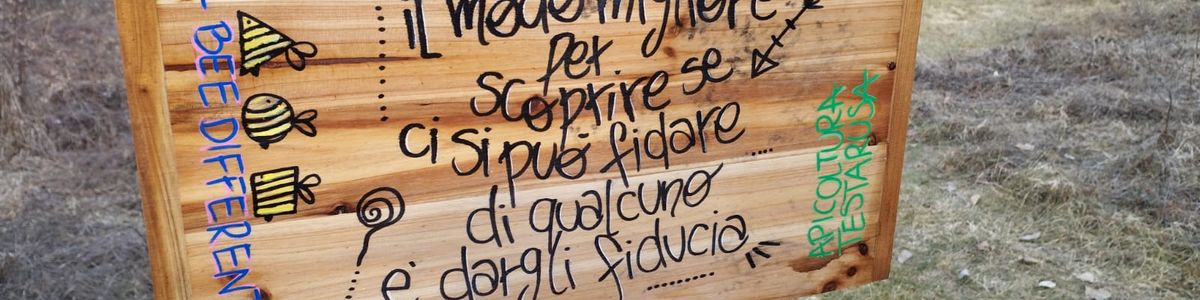 il modo migliore
per
scoprire se
ci si può fidare ....
di qualcuno
è dargli fiducia
........
BEE DIFFERENT
APICOLTURA
TESTARUSA